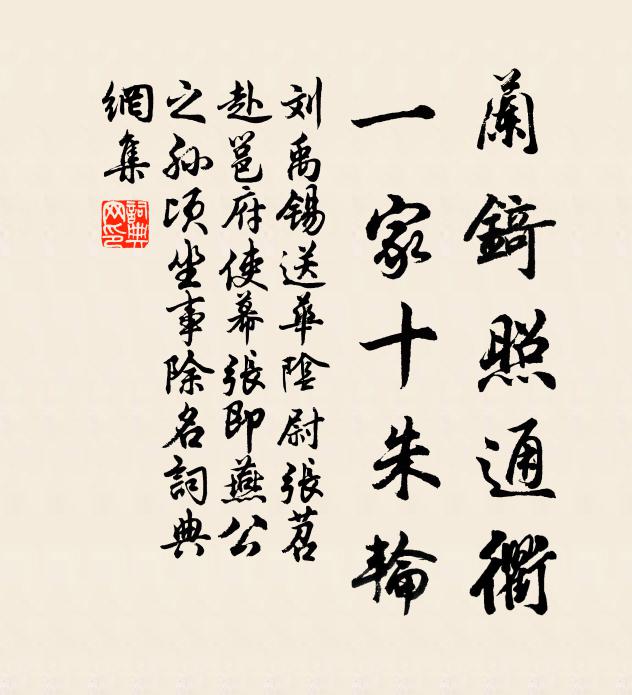 蘭錡照通衢
一家十朱輪
刘禹锡送華陰尉張苕
赴邕府使幕張即燕公
之孙頃坐事除名詞典
網集
詞典网印